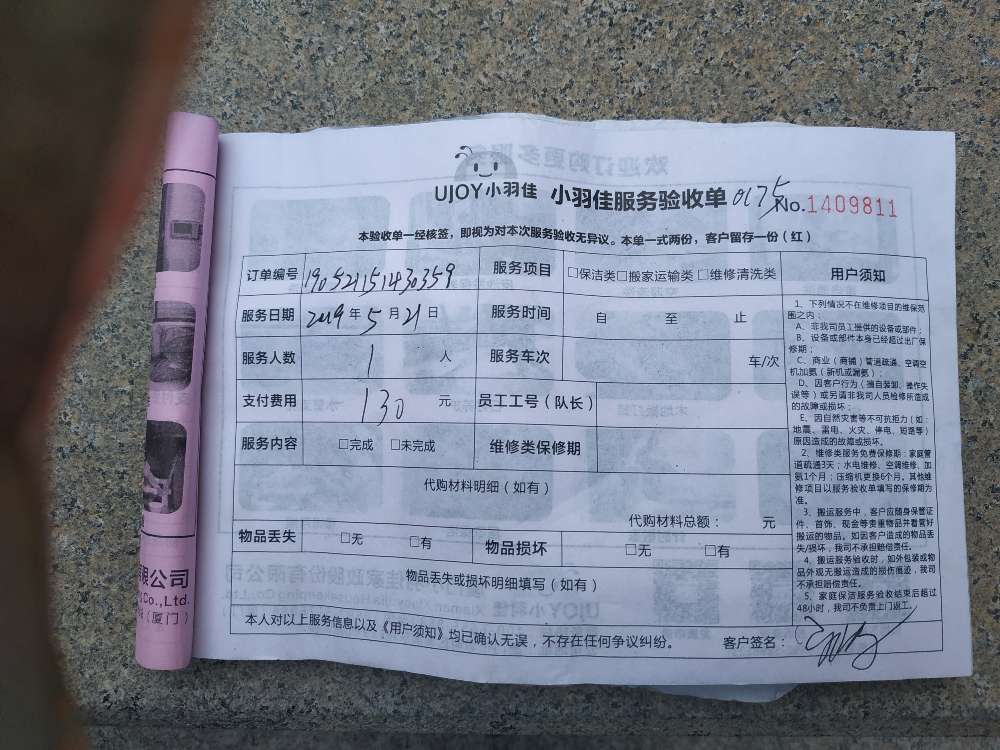 UJOY小羽佳 小羽佳服务验收单 0175 No.1409811
本验收单一经核签，即视为对本次服务验收无异议。本单一式两份，客户留存一份（红）
订单编号 190521151430359 服务项目 □保洁类□搬家运输类□维修清洗类 用户须知
服务日期 2019年5月21日 服务时间 自 至 止
服务人数 1 人 服务车次 车/次
支付费用 130 元 员工工号（队长）
服务内容 □完成 □未完成 维修类保修期
代购材料明细（如有）
代购材料总额： 元
物品丢失 □无 □有 物品损坏 □无 □有
物品丢失或损坏明细填写（如有）
本人对以上服务信息以及《用户须知》均已确认无误，不存在任何争议纠纷。 客户签名：
1、下列情况不在维修项目的维保范
围之内：
A、非我司员工提供的设备或部件；
B、设备或部件本身已经超过出厂保
修期；
C、商业（商铺）管道疏通、空调空
机加氨（新机或漏氨）；
D、因客户行为（擅自装卸、操作失
误等）或另请非我司人员检修所造成
的故障或损坏；
E、因自然灾害等不可抗拒力（如：
地震、雷电、火灾、停电、短路等）
原因造成的故障或损坏。
2、维修类服务免费保修期：家庭管
道疏通3天；水电维修、空调维修、加
氨1个月；压缩机更换6个月。其他维
修项目以服务验收单填写的保修期为
准。
3、搬运服务中，客户应随身保管证
件、首饰、现金等贵重物品并看管好
搬运的物品。如因客户造成的物品丢
失/损坏，我司不承担赔偿责任。
4、搬运服务验收时，如外包装或物
品外观无搬运造成的损伤痕迹，我司
不承担赔偿责任。
5、家庭保洁服务验收结束后超过
48小时，我司不负责上门返工。
限公司
Co.,Ltd.
（厦门）